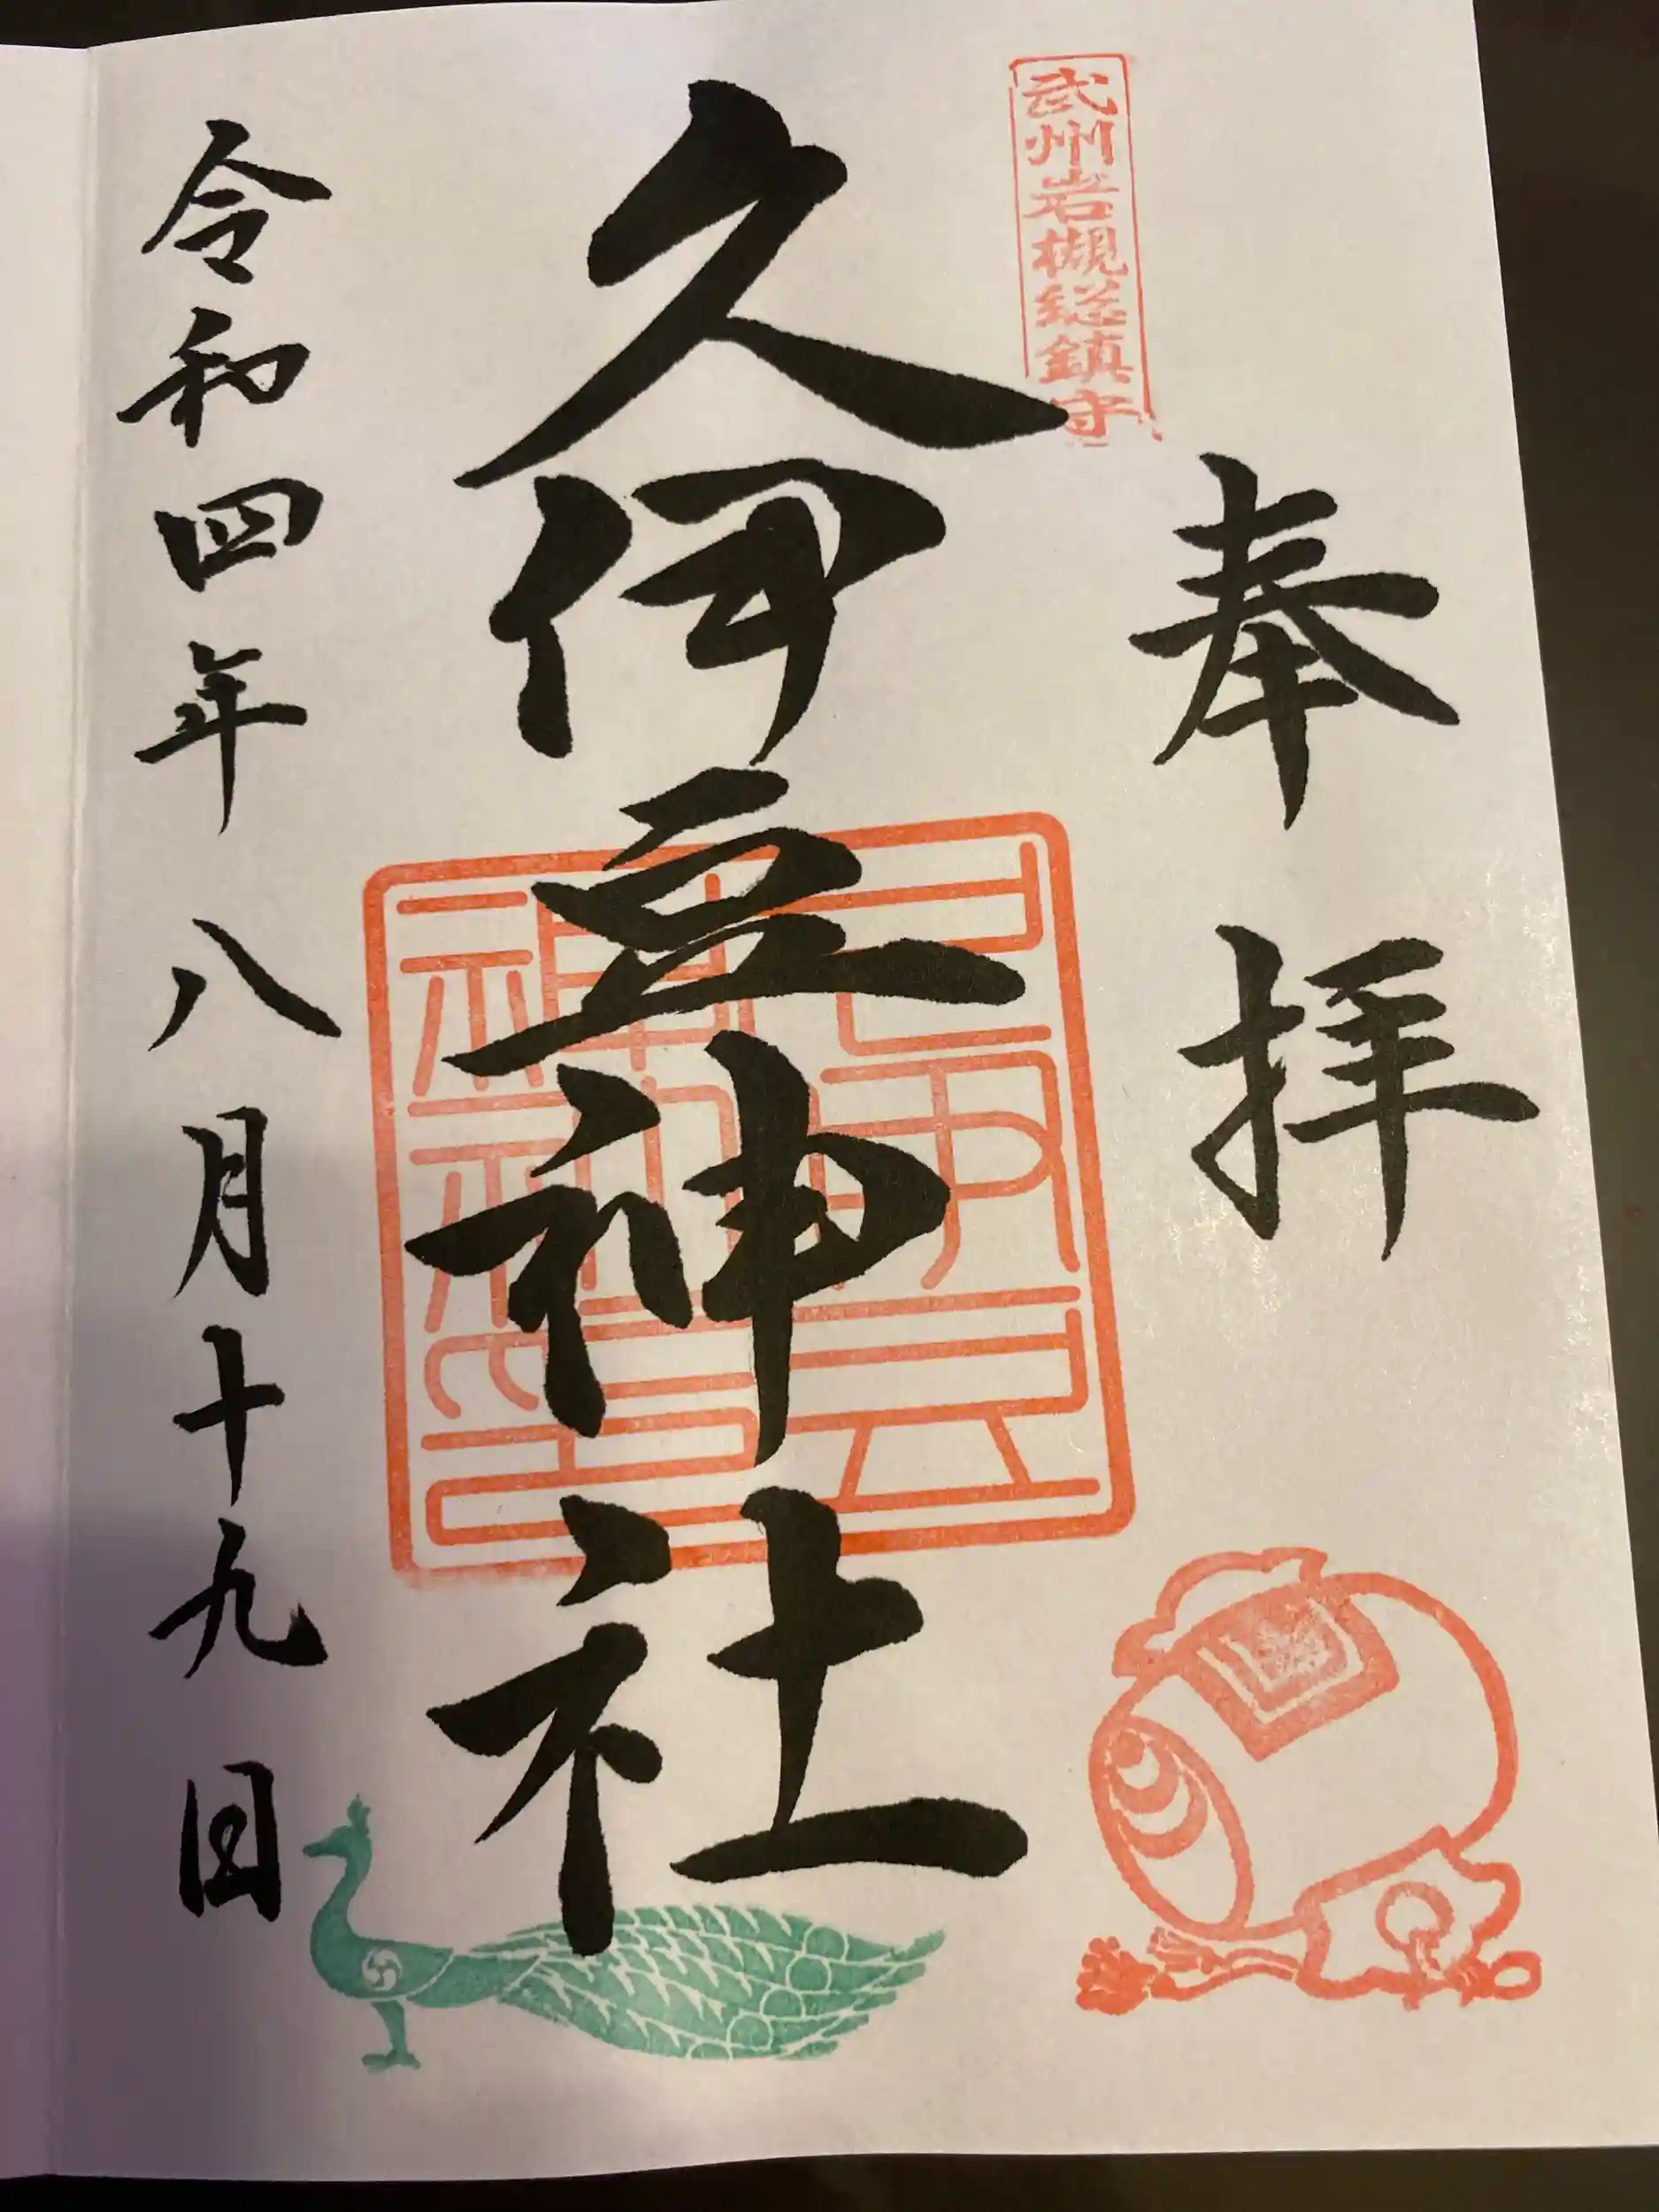 武州岩槻総鎮守
奉拝
久伊豆神社
令和四年八月十九日